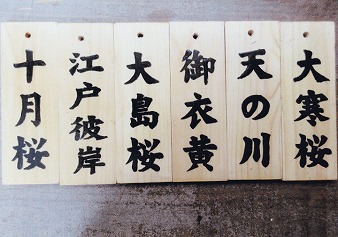 大寒桜
天の川
御衣黄
大島桜
江戸彼岸
十月桜